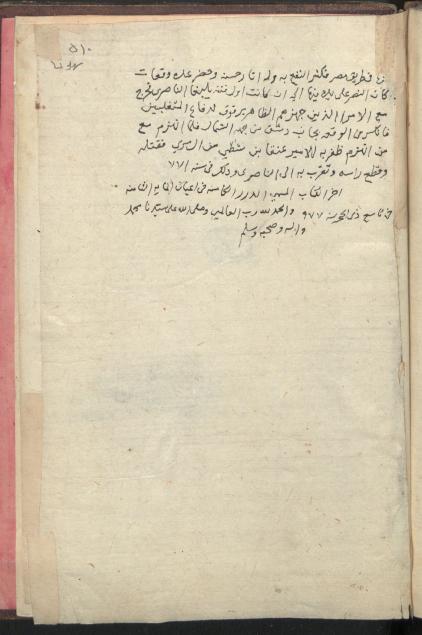 ٥١٠
في طريق مصر فكثر النفع به وله آثار حسنة وحضر عدة وقعات
كان النصر على يديه فيها الى ان كانت اول فتنة يلبغا الناصري فخرج
مع الامرا الذين جهزهم الظاهر برقوق لدفاع المتغلبين
فانكسر من الوقعة بجانب دمشق من جهة الشمال فلما انهزم مع
من انهزم ظفر به الامير عنقا بن شطي من الامري فقتله
وقطع راسه وتقرب به الى الناصري وذلك في سنة ٧٧١
اخر الكتاب المسمى الدرر الكامنة في اعيان المايه الثامنة
في تاسع ذي الحجة سنة ٩٧٧ والحمد لله رب العالمين وصلى الله على سيدنا محمد
واله وصحبه وسلم